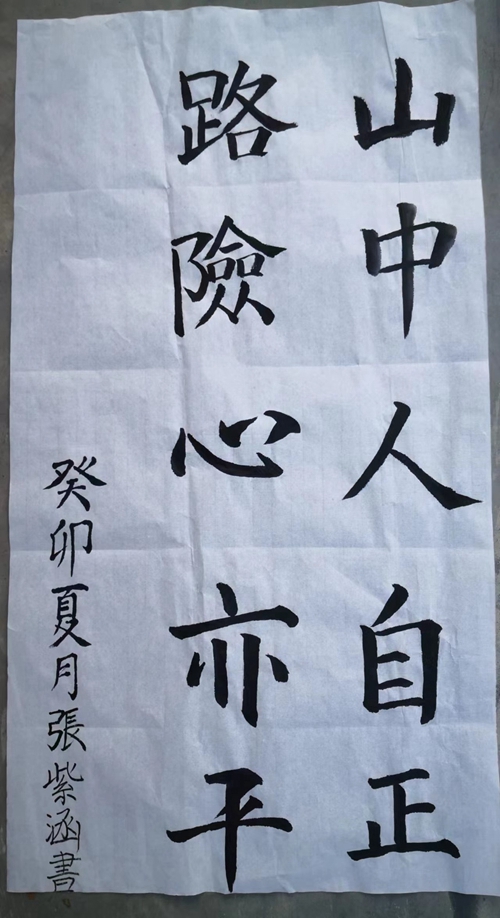 山中人自正
路險心亦平
癸卯夏月張紫涵書